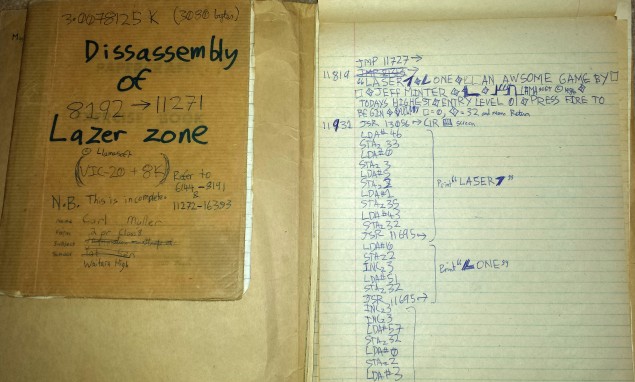 3.0078125 K (3080 bytes)
Dissassembly
of
8192 → 11271
Lazer zone
© Llamasoft
(VIC-20 + 8K)
Refer to
6144-8191
&
11272-16383
N.B. This is incomplete.
Name Carl Muller
Subject
School
Waiters High
JMP 11727 →
11819
"LASER ZONE AN AWSOME GAME BY
JEFF MINTER LLAMASOFT
TODAYS HIGHEST ENTRY LEVEL 01 PRESS FIRE TO
BEGIN =0, =32 and means Return
11932 JSR 13056 → CLR screen
LDA# 46
STAz 33
LDA# 0
STAz 3
LDA# 5
STAz 2
LDA# 1
STAz 35
LDA# 43
STAz 32
JSR 11695 →
Print "LASER Z"
LDA# 6
STAz 2
INCz 3
LDA# 51
STAz 32
JSR 11695 →
Print "ZONE"
INCz 3
INCz 3
LDA# 57
STAz 32
LDA# 0
STAz 2
LDA# 3